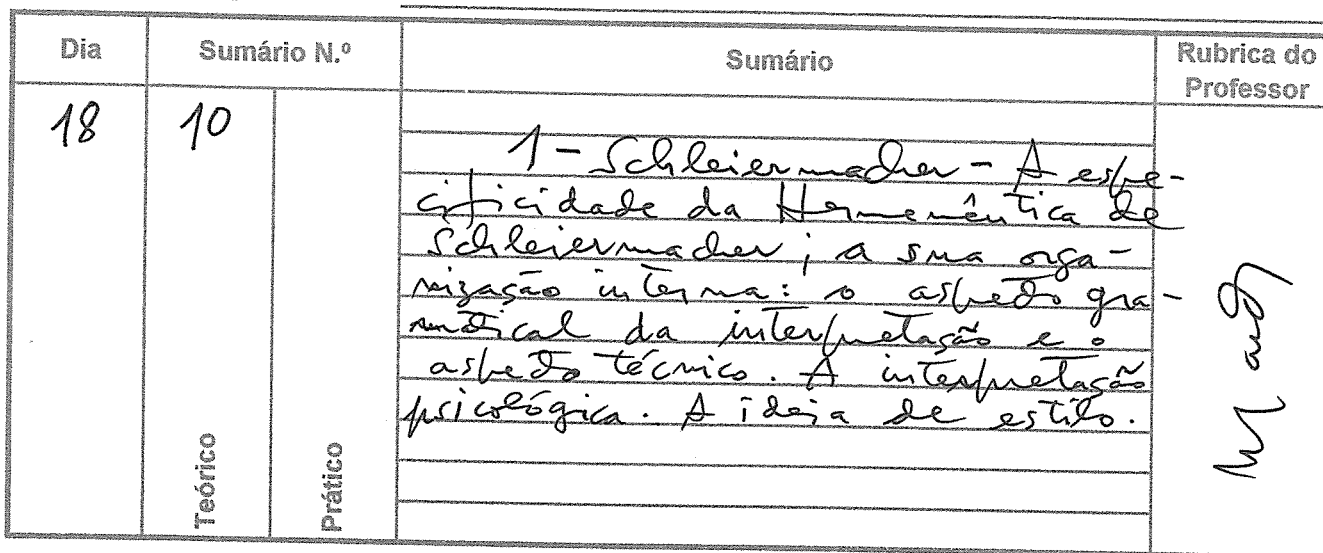 Dia
Sumário N.º
Sumário
Rubrica do
Professor
18
10
1 - Schleiermacher - A espe-
cificidade da Hermenêutica de
Schleiermacher; a sua orga-
nização interna: o aspecto gra-
matical da interpretação e o
aspecto técnico. A interpretação
psicológica. A ideia de estilo.
Teórico
Prático